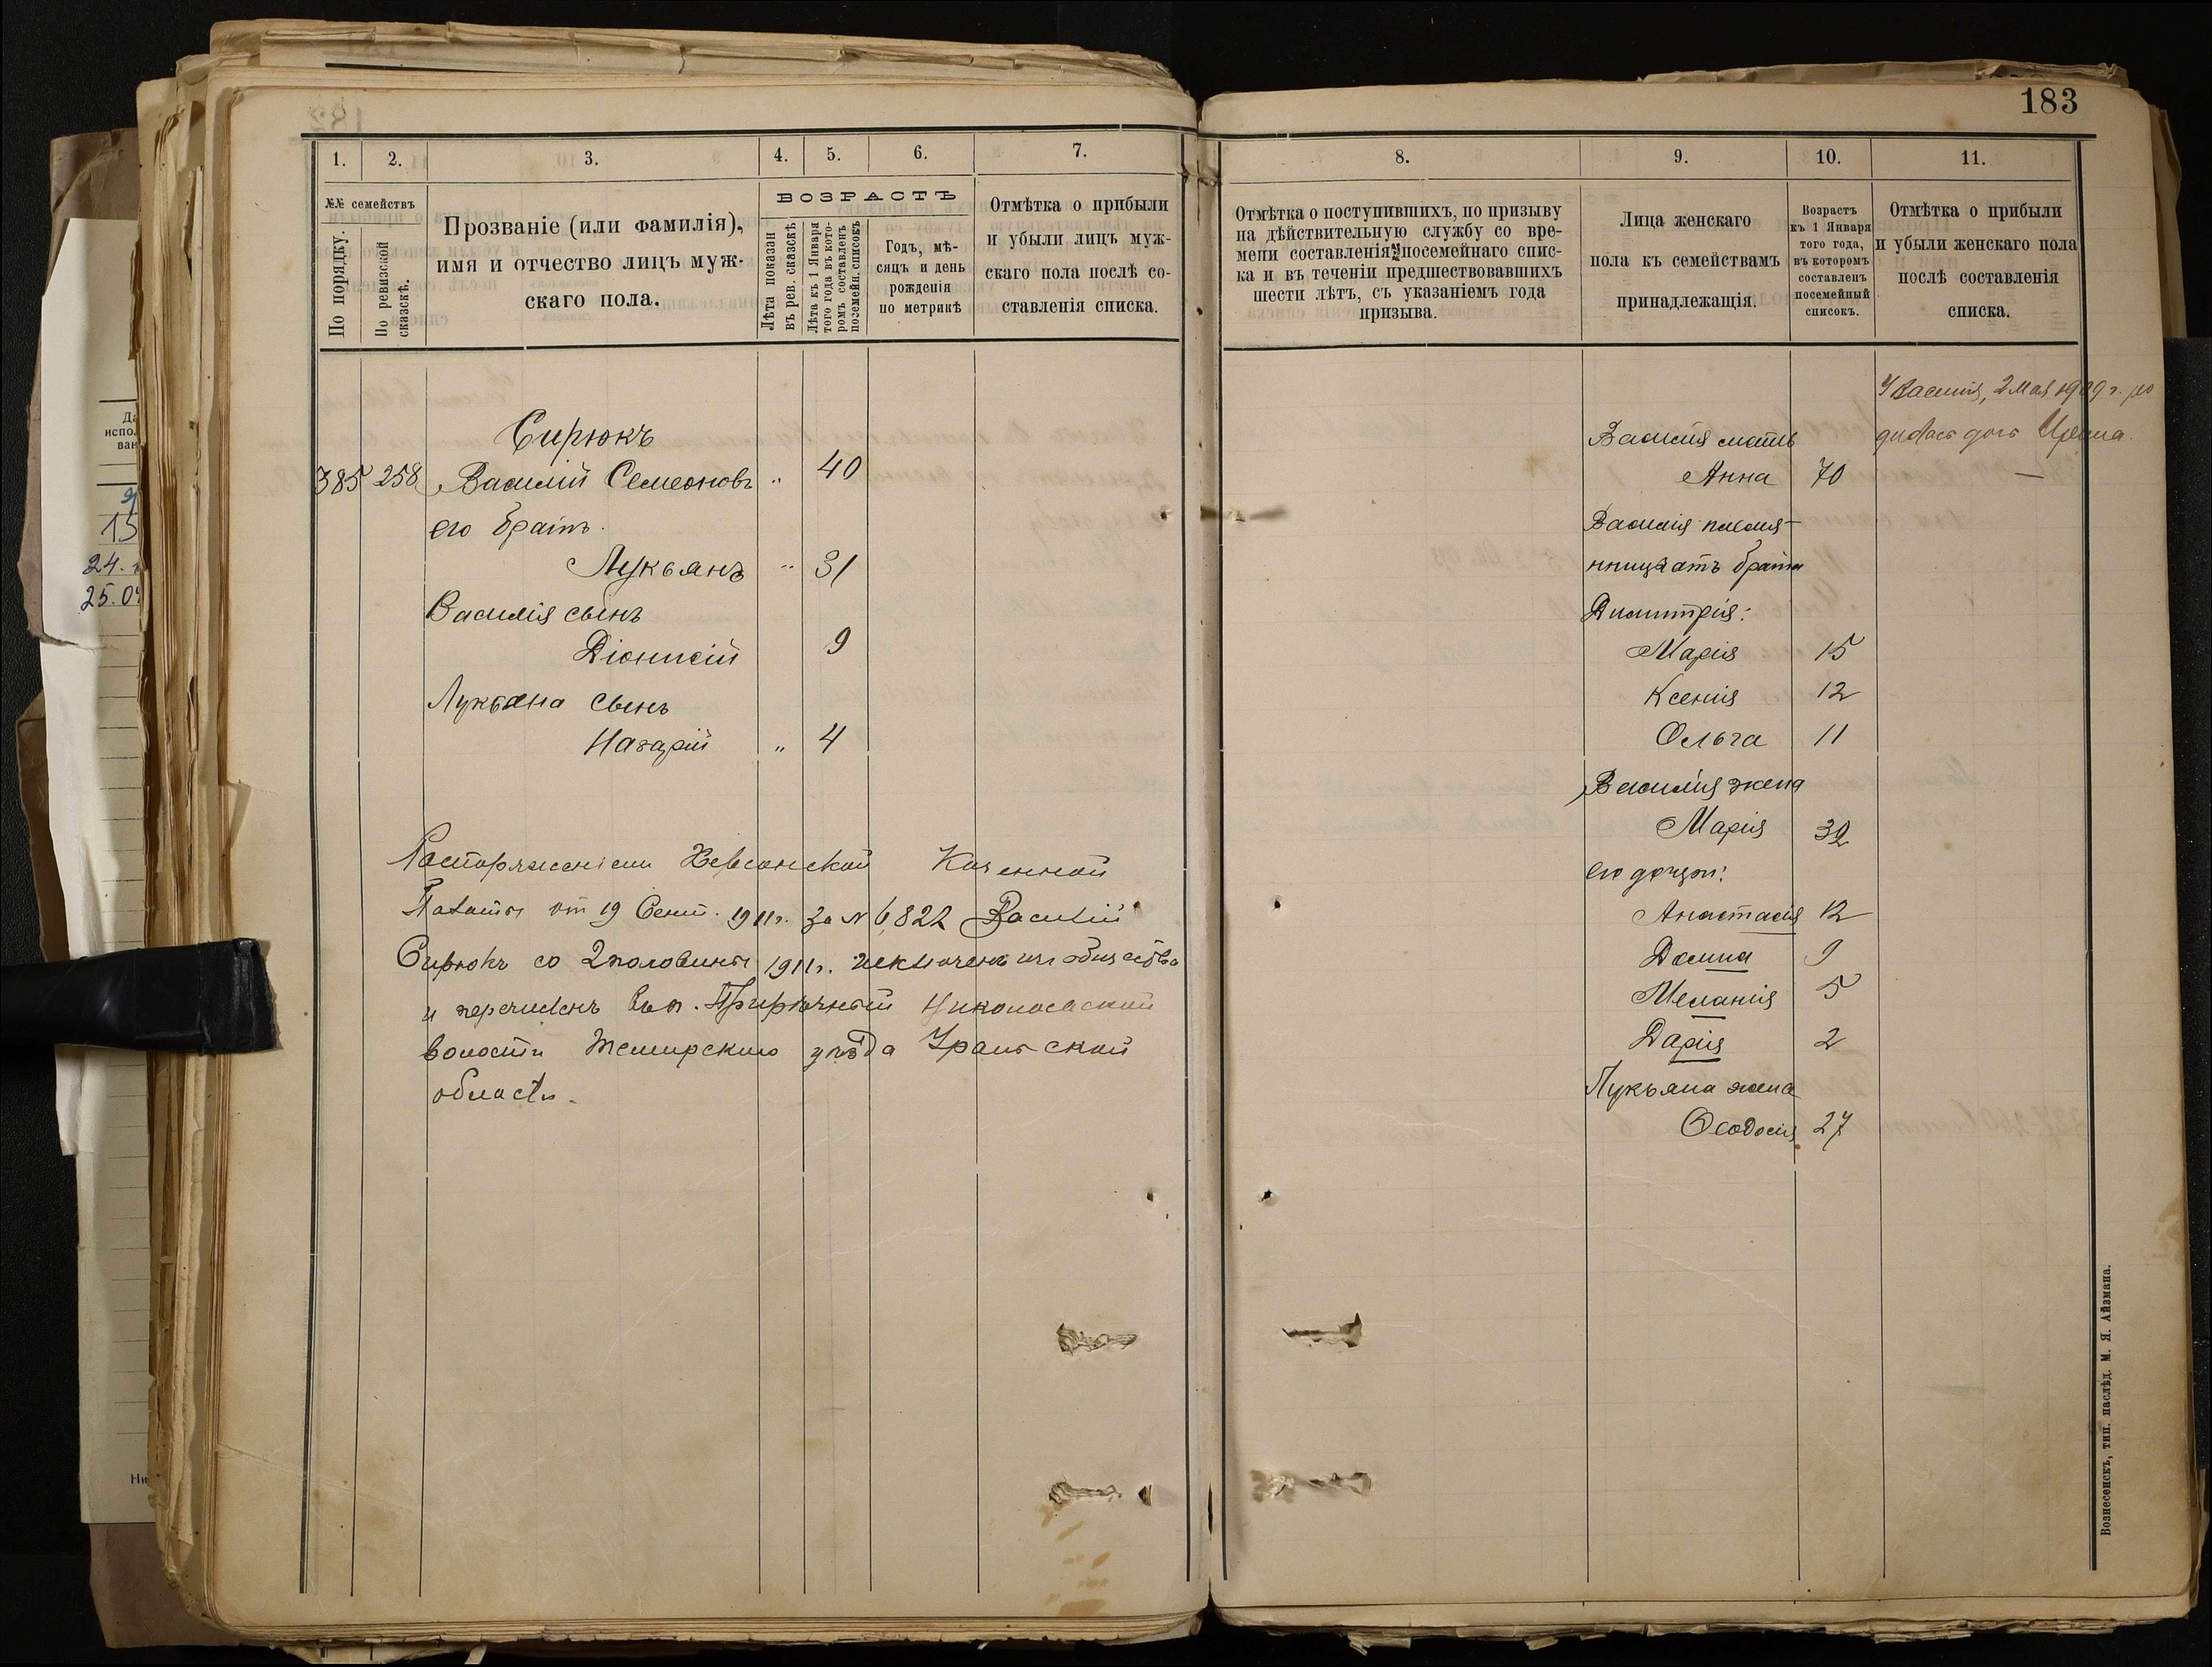 183
1. 2. 3. 4. 5. 6. 7.
№№ семействъ
По порядку.
По ревизской сказскѣ.
Прозваніе (или фамилія),
имя и отчество лицъ муж-
скаго пола.
ВОЗРАСТЪ
Лѣта показан
въ рев. сказскѣ
Лѣта къ 1 Января
того года въ кото-
ромъ составленъ
посемейн. списокъ
Годъ, мѣ-
сяцъ и день
рожденія
по метрикѣ
Отмѣтка о прибыли
и убыли лицъ муж-
скаго пола послѣ со-
ставленія списка.
Сирюкъ
385 258 Василій Семеоновъ " 40
его братъ.
Лукьянъ " 31
Василія сынъ
Діонисій 9
Лукьяна сынъ
Назарій " 4
Распоряженіем Херсонской Казенной
Палаты от 19 Сент. 1911г. за № 6,822 Василій
Сирюкъ со 2 половины 1911г. исключенъ изъ общества
и перечисленъ въ п.
волости Темирскаго уѣзда Уральской
области.
8. 9. 10. 11.
Отмѣтка о поступившихъ, по призыву
на дѣйствительную службу со вре-
мени составленія посемейнаго спис-
ка и въ теченіи предшествовавшихъ
шести лѣтъ, съ указаніемъ года
призыва.
Лица женскаго
пола къ семействамъ
принадлежащія.
Возрастъ
къ 1 Января
того года,
въ которомъ
составленъ
посемейный
списокъ.
Отмѣтка о прибыли
и убыли женскаго пола
послѣ составленія
списка.
У Василія, 2 мая 1909 г. ро
дилась дочь
Василія мать
Анна 70 —
Василія племя-
нницы отъ брата
Димитрія:
Марія 15
Ксенія 12
Ольга 11
Василія жена
Марія 32
его дочери:
Анастасія 12
Домна 9
Меланія 5
Дарія 2
Лукьяна жена
Ѳеодосія 27
Вознесенскъ, тип. наслѣд. М. Я. Айзмана.
Да
испол
ван
15
24.
25.04
Ни